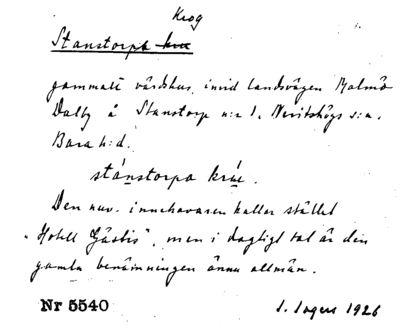 Krog
Stanstorpa kru
gammalt värdshus invid landsvägen Malmö
Dalby å Stanstorp n:r 1, Nevitshögs s:n.
Bara h:d.
stánstorpa krúe.
Den nuv. innehavaren kallar stället
"Hotell Gästis", men i dagligt tal är den
gamla benämningen ännu allmän.
Nr 5540
1926